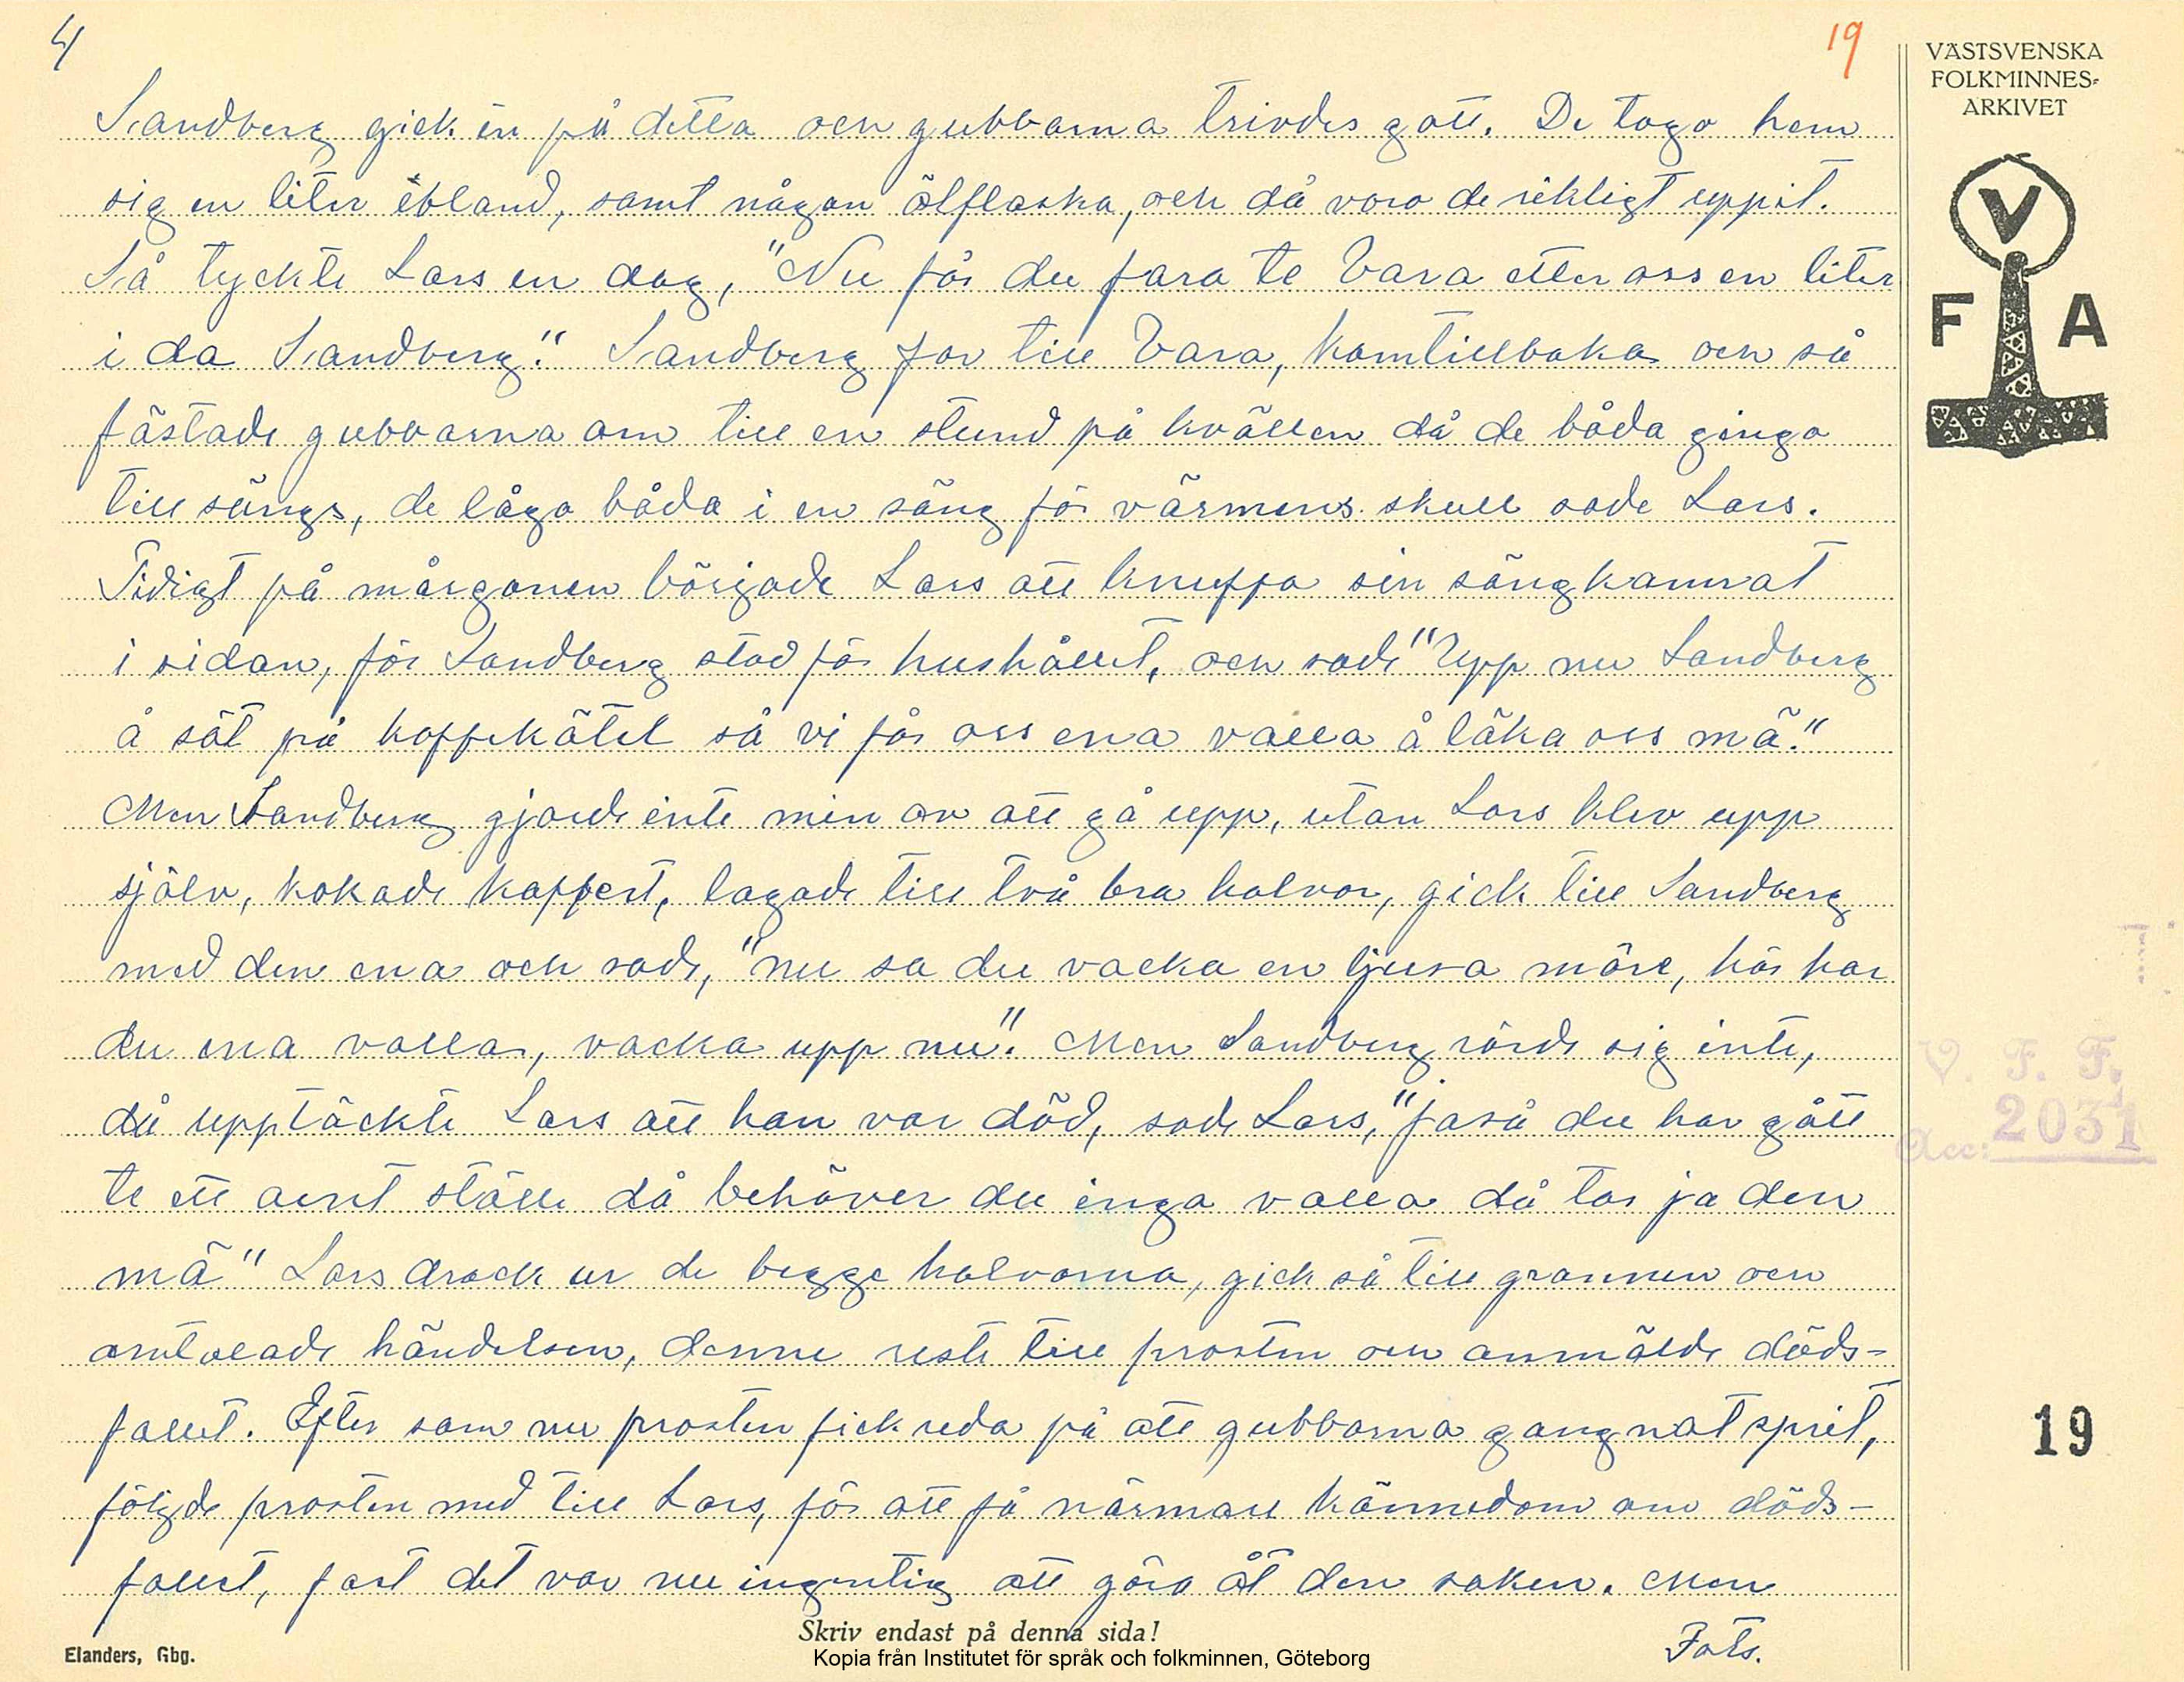 4
19
VÄSTSVENSKA
FOLKMINNES-
ARKIVET
V
F A
Sandberg gick in på detta och gubbarna trivdes gott. De togo hem
sig en liter ibland, samt någon ölflaska, och då voro de rikligt uppit.
Så tyckte Lars en dag, "Nu får du fara te Vara etter oss en liter
i da Sandberg." Sandberg for till Vara, kom tillbaka och så
fästade gubbarna om till en stund på kvällen då de båda gingo
till sängs, de lågo båda i en säng för värmens skull sade Lars.
Tidigt på mårgonen började Lars att knuffa sin sängkamrat
i sidan, för Sandberg stod för hushållet, och sade "Upp nu Sandberg
å sät på kaffekätel så vi får oss ena valla å läka oss mä."
Men Sandberg gjorde inte min av att gå upp, utan Lars klev upp
själv, kokade kaffet, lagade till två bra halvor, gick till Sandberg
med den ena och sade, "nu sa du vacka en ljusa märe, här har
du ena valla, vacka upp nu". Men Sandberg rörde sig inte,
då upptäckte Lars att han var död, sade Lars, "jaså du har gått
te ett aent ställe då behöver du inga valla då tar ja den
mä" Lars drack ur de begge halvorna, gick så till grannen och
omtalade händelsen, denne reste till prosten och anmälde döds-
fallet. Efter som nu prosten fick reda på att gubbarna gangnat sprit,
följde prosten med till Lars, för att få närmare kännedom om döds-
fallet, fast det var nu ingenting att göra åt den saken. Men
Forts.
V. F. F.
Acc: 2031
19
Skriv endast på denna sida!
Elanders, Gbg.
Kopia från Institutet för språk och folkminnen, Göteborg